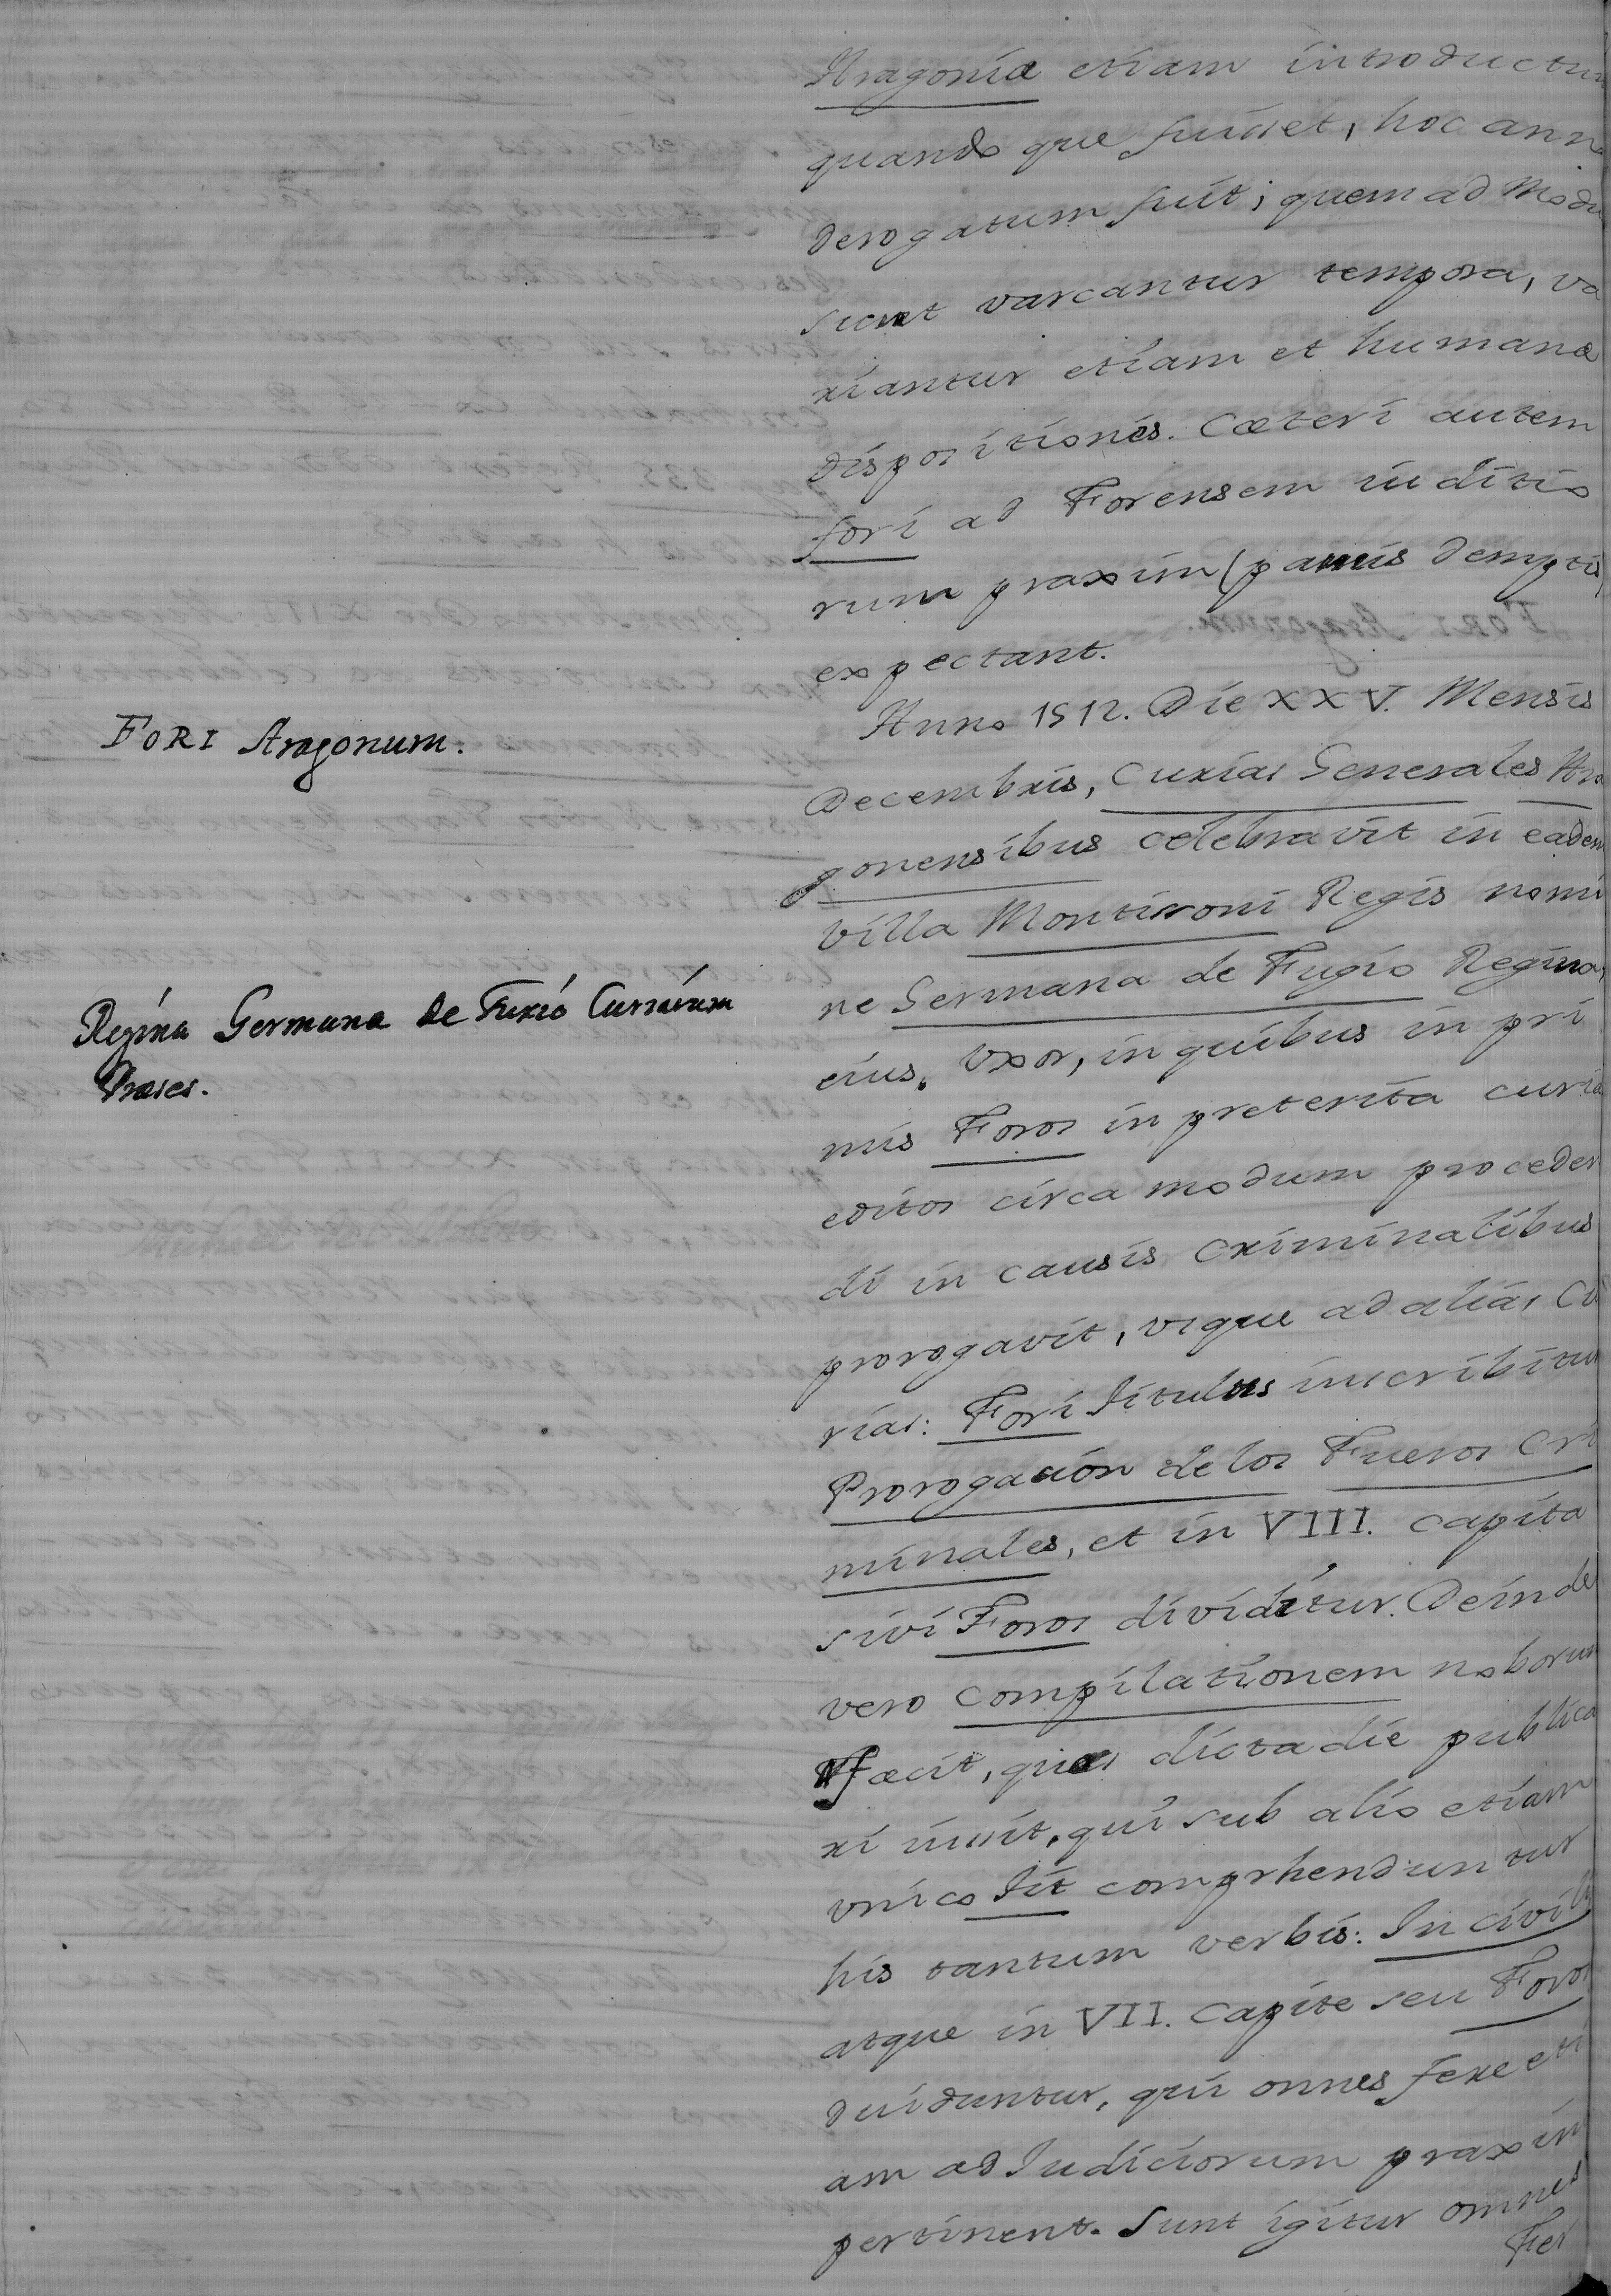 Aragonia etiam introductum
quando que fuisset, hoc anno
derogatum fuit; quem ad modu
sicut varcantur tempora, va
riantur etiam et humanæ
dispositionis. Cæteri autem
fori ad Forensem iuditio
rum praxim (paucis demptis)
expectant.
FORI Aragonum.
Anno 1512. Die XXV. Mensis
Decembris, Curias Generales Ara
gonensibus celebravit in eadem
villa Montissoni Regis nomi
ne Germana de Fugio Regina,
Regina Germana de Fuxio Curiarum
Præses.
eius, Vxor, in quibus in pri
mis Foros in preterita curia
editos circa modum proceden
di in causis criminalibus
prorogavit, vsque ad alias Cu
rias: Fori Titulus inscribitur
Prorogación de los Fueros Cri
minales, et in VIII. capita
sivi Foros dividitur. Deinde
vero compilationem noborum
fæcit, quos dicta die publica
ri iussit, qui sub alio etiam
vnico Tit comprhenduntur
his tantum verbis: In civili
atque in VII. capite seu Foros
duiduntur, qui onnes fere eti
am ad Iudiciorum praxim
pertinent. Sunt igitur omnes
Fer